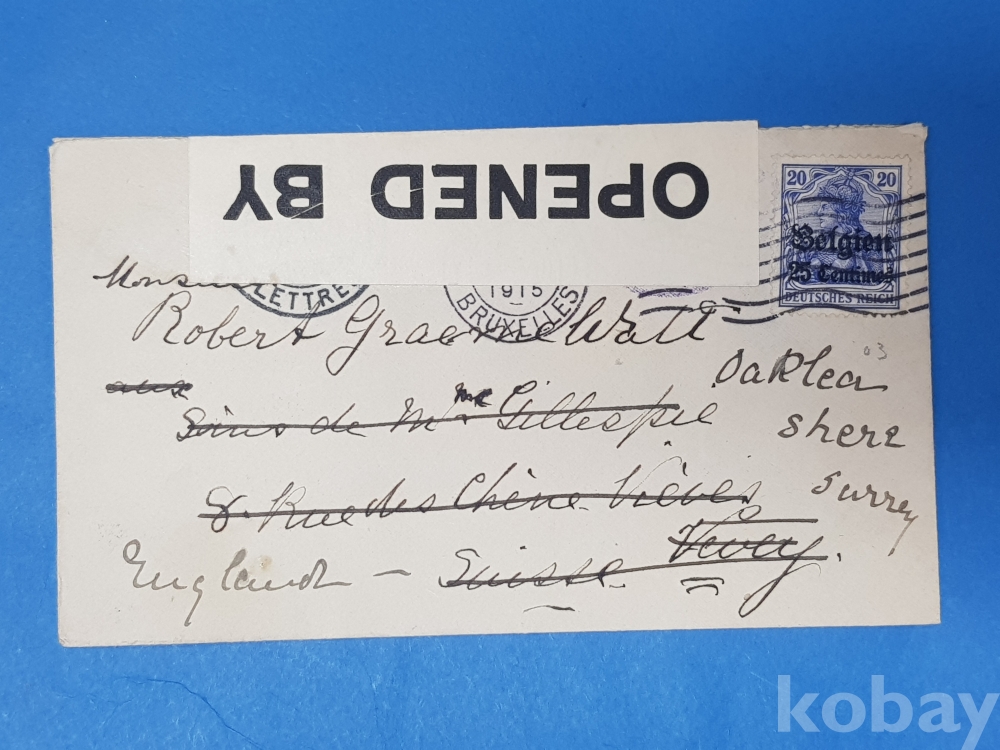 OPENED BY
20 20
Belgien
25 Centimes
DEUTSCHES REICH
LETTRE
1915
BRUXELLES
Robert Graeme Watt
03
aux
Soins de Mme Gillespie
8 Rue des Chène-Vières
Vevey.
Suisse
Oaklea
Shere
Surrey
England -
kobay